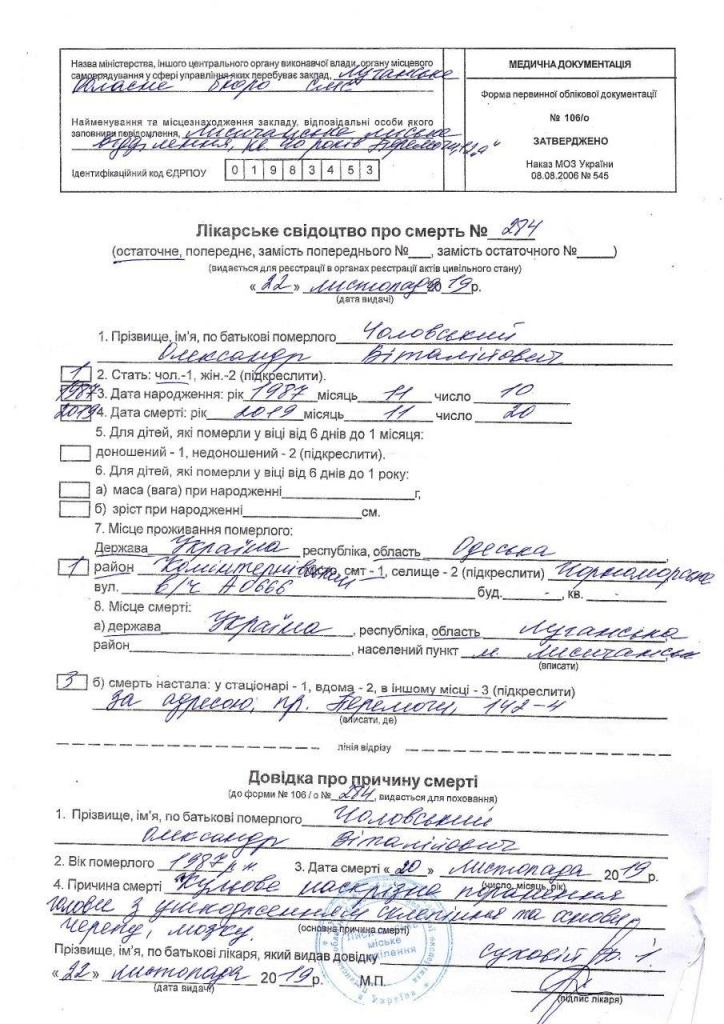 Назва міністерства, іншого центрального органу виконавчої влади, органу місцевого
самоврядування у сфері управління яких перебуває заклад, Луганське
Обласне бюро СМЕ
Найменування та місцезнаходження закладу, відповідальні особи якого
заповнили повідомлення, Лисичанське міське
відділення, кв. 40 років Перемоги,
Ідентифікаційний код ЄДРПОУ 0 1 9 8 3 4 5 3
МЕДИЧНА ДОКУМЕНТАЦІЯ
Форма первинної облікової документації
№ 106/о
ЗАТВЕРДЖЕНО
Наказ МОЗ України
08.08.2006 № 545
Лікарське свідоцтво про смерть № 284
(остаточне, попереднє, замість попереднього №___, замість остаточного №_____)
(видається для реєстрації в органах реєстрації актів цивільного стану)
« 22 » листопада 2019р.
(дата видачі)
1. Прізвище, ім’я, по батькові померлого Чоловський
Олександр Віталійович
1 2. Стать: чол.-1, жін.-2 (підкреслити).
1987 3. Дата народження: рік 1987 місяць 11 число 10
2019 4. Дата смерті: рік 2019 місяць 11 число 20
5. Для дітей, які померли у віці від 6 днів до 1 місяця:
доношений - 1, недоношений - 2 (підкреслити).
6. Для дітей, які померли у віці від 6 днів до 1 року:
а) маса (вага) при народженні____г,
б) зріст при народженні____см.
7. Місце проживання померлого:
Держава Україна республіка, область Одеська
1 район Комінтернівський місто, смт - 1, селище - 2 (підкреслити) Чорноморське
вул. в/ч А0666 буд. - , кв. -
8. Місце смерті:
а) держава Україна, республіка, область Луганська
район____, населений пункт м. Лисичанськ
(вписати)
3 б) смерть настала: у стаціонарі - 1, вдома - 2, в іншому місці - 3 (підкреслити)
за адресою, пр. Перемоги, 142-4
(вписати, де)
лінія відрізу
Довідка про причину смерті
(до форми № 106 / о № 284, видається для поховання)
1. Прізвище, ім’я, по батькові померлого Чоловський
Олександр Віталійович
2. Вік померлого 1987 р.н. 3. Дата смерті « 20 » листопада 2019р.
(число, місяць, рік)
4. Причина смерті Кульове наскрізне поранення
голови з ушкодженням склепіння та основи
черепу, мозку.
(основна причина смерті)
Прізвище, ім’я, по батькові лікаря, який видав довідку Суховій
« 22 » листопада 2019р. М.П.
(дата видачі)
(підпис лікаря)
міське
відділення
Україна